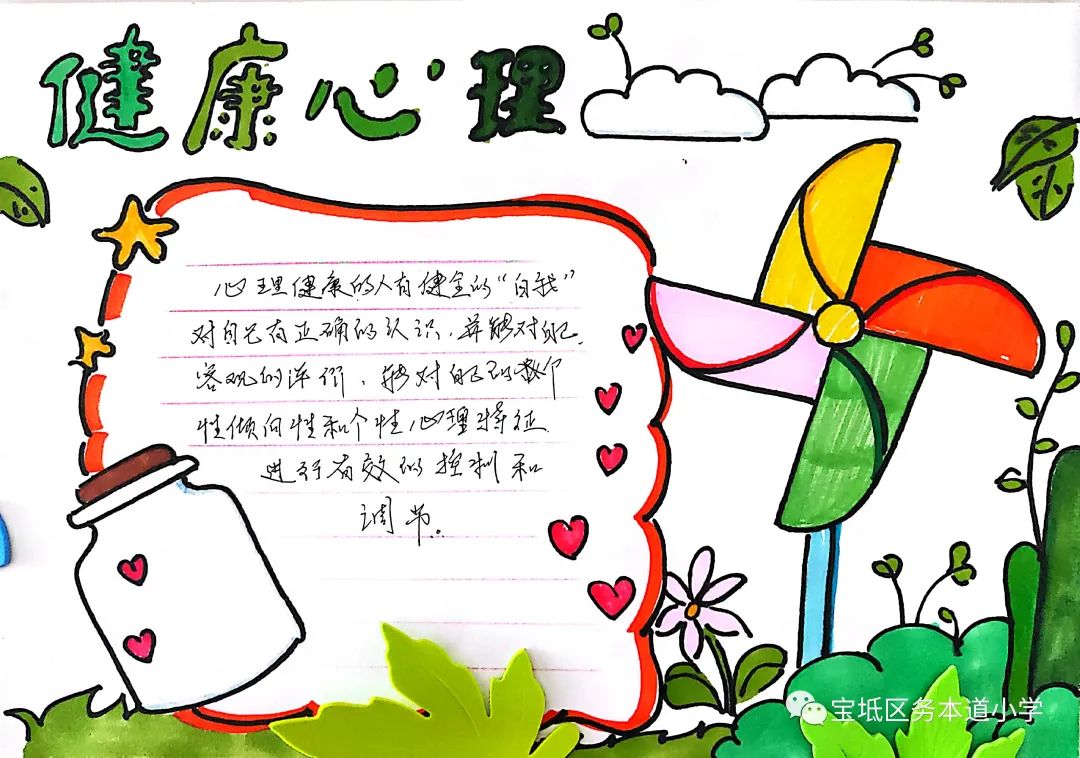 健康心理
心理健康的人有健全的“自我”
对自己有正确的认识，并能对自己
客观的评价，能对自己的
性倾向性和个性心理特征
进行有效的控制和
调节。
宝坻区务本道小学